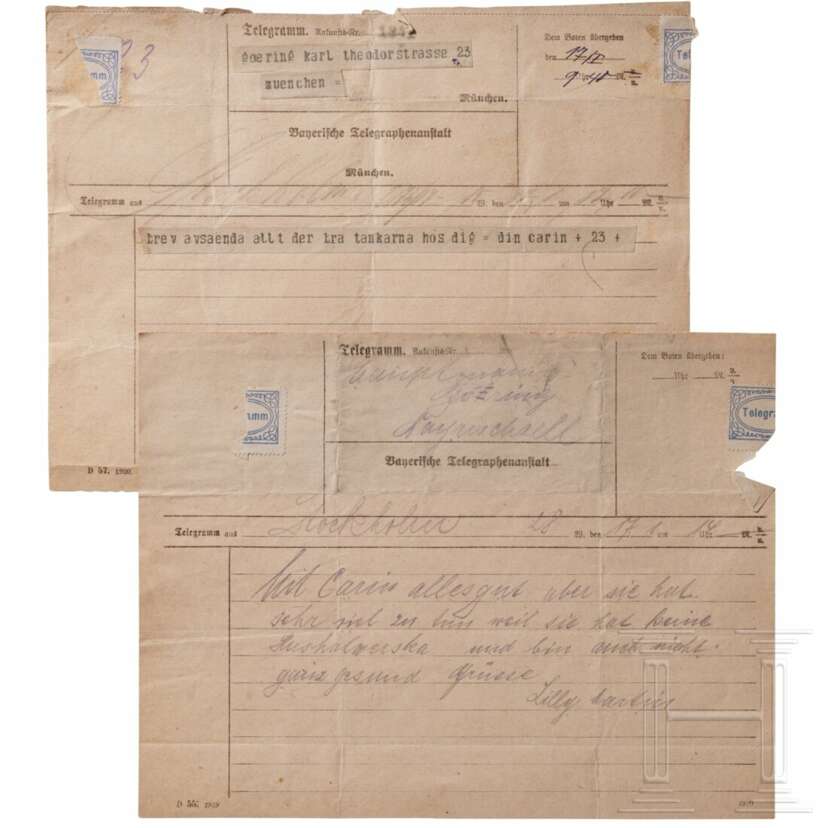 Telegramm. Ankunfts-Nr.
goering karl theodorstrasse 23
muenchen =
München.
Bayerische Telegraphenanstalt
München.
Dem Boten übergeben
den 17/II
9 Uhr 40 M. v./n.
mm
Tel
23
Telegramm aus Stockholm 19. den um Uhr M. v./n.
brev avsaenda allt der tra tankarna hos dig = din carin + 23 +
D 57. 1920.
Telegramm. Ankunfts-Nr.
Göring
Bayrischzell
Bayerische Telegraphenanstalt
Dem Boten übergeben:
Uhr M. v./n.
amm
Telegra
Telegramm aus Stockholm 28 W. den 17. 1 um 14 Uhr M. v./n.
Mit Carin alles gut aber sie hat
sehr viel zu tun weil sie hat keine
und bin auch nicht
ganz gesund Grüsse
Lilly Martin
D 55. 1919